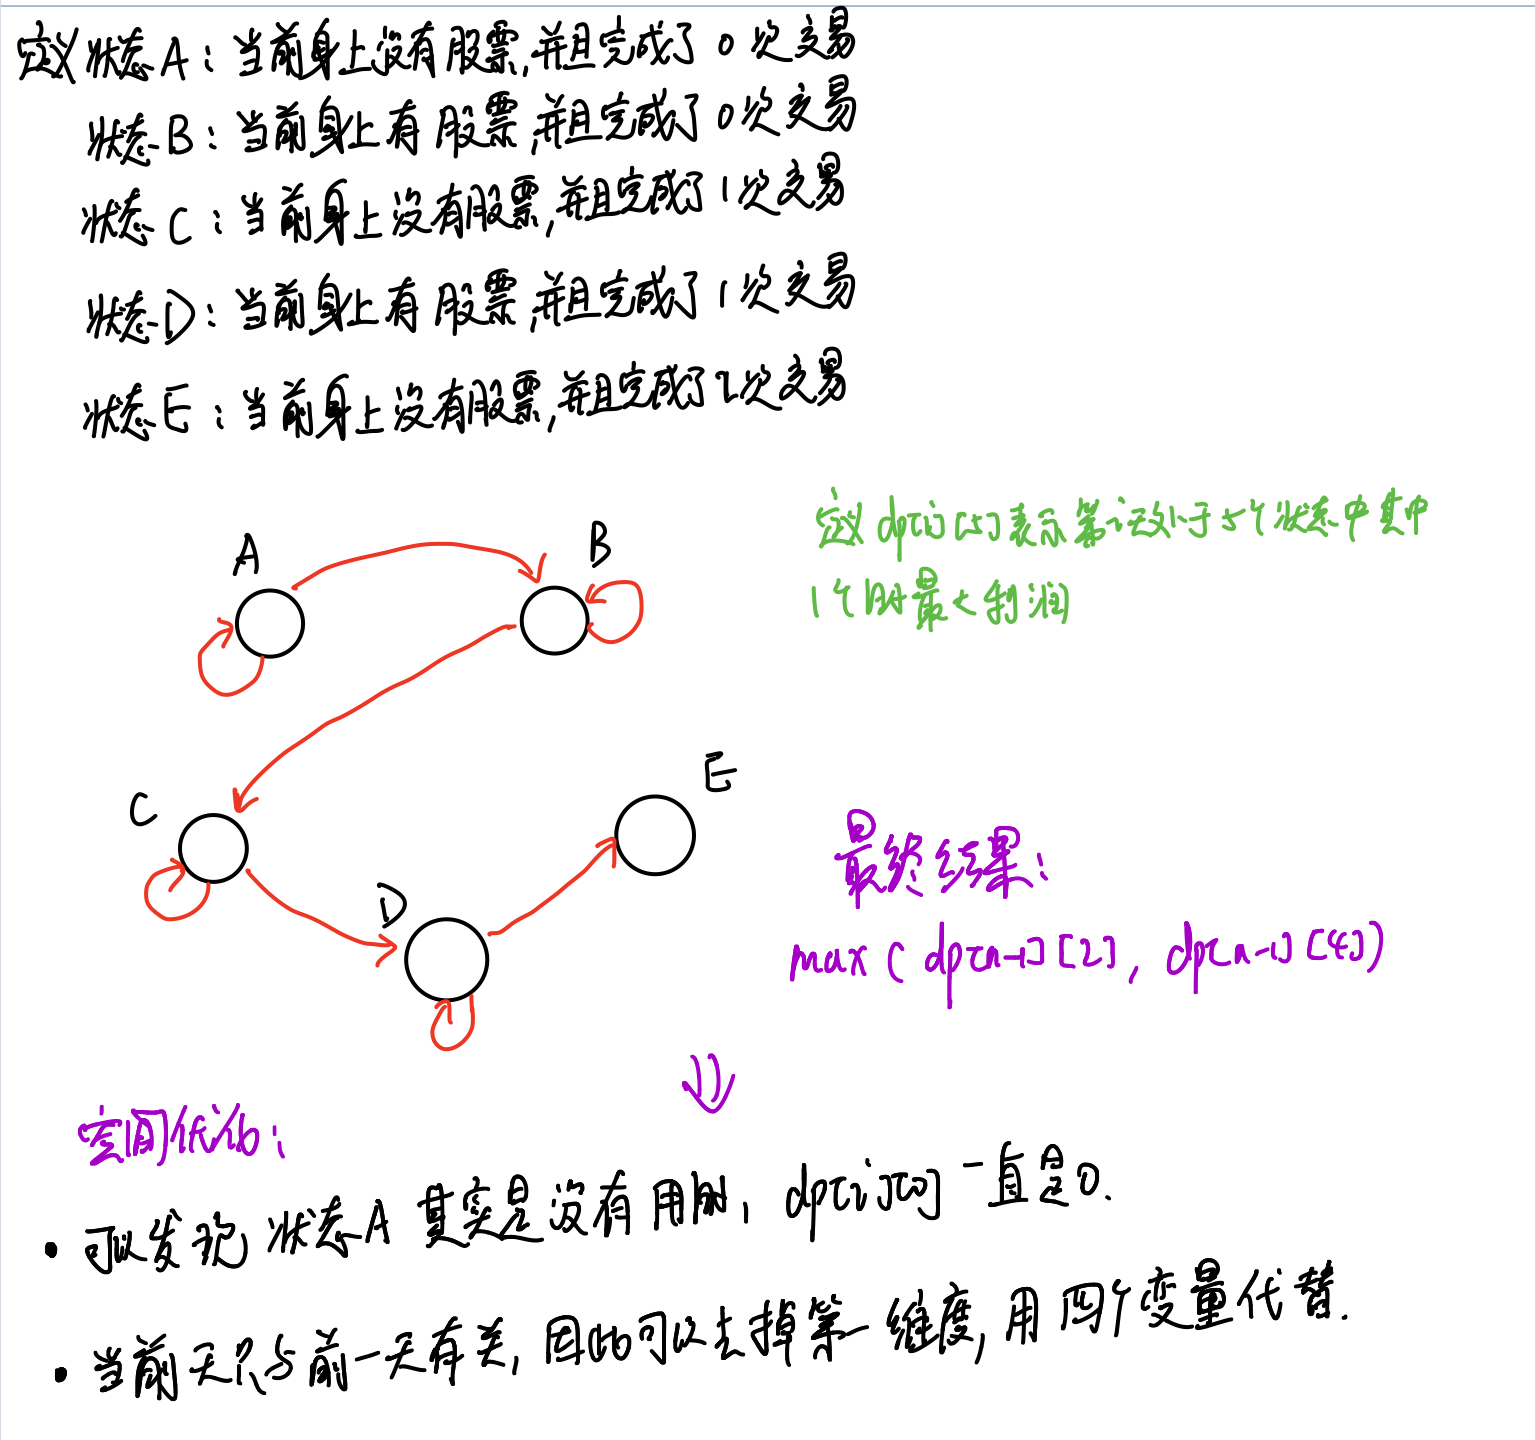 定义状态A：当前身上没有股票,并且完成了0次交易
状态B：当前身上有股票,并且完成了0次交易
状态C：当前身上没有股票,并且完成了1次交易
状态D：当前身上有股票,并且完成了1次交易
状态E：当前身上没有股票,并且完成了2次交易
定义dp[i][5]表示第i天处于5个状态中其中
1个时最大利润
A
B
C
D
E
最终结果：
max(dp[n-1][2], dp[n-1][4])
空间优化：
• 可以发现状态A其实是没有用的, dp[i][0]一直是0.
• 当前天只与前一天有关, 因此可以去掉第一维度, 用四个变量代替.